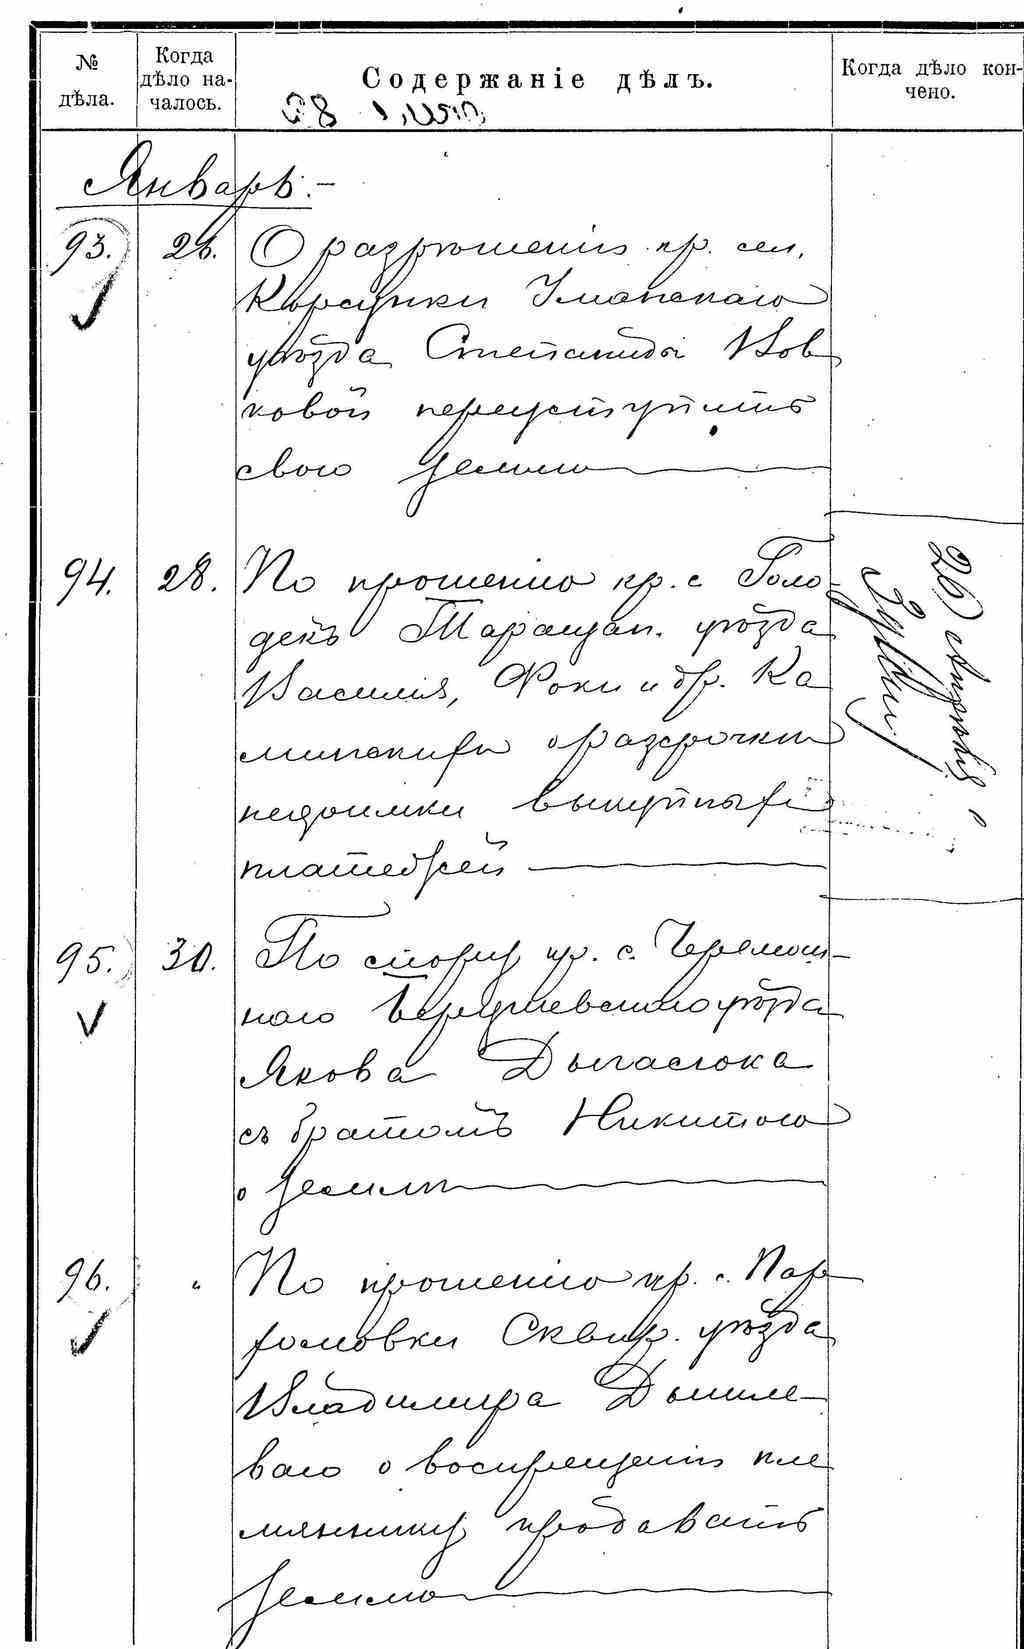 № дѣла.
Когда дѣло на-
чалось.
Содержаніе дѣлъ.
Когда дѣло кон-
чено.
Январь.-
93. 26. О разрѣшеніи кр. сел.
Корсунки Уманскаго
уѣзда Степаниды Вов
ковой переуступить
свою землю
94. 28. По прошенію кр. с Голо-
декъ Таращан. уѣзда
Василія, Фоки и др. Ка
минскихъ о разсрочки
недоимки выкупныхъ
платежей
26 Апрѣля
95. 30. По спору кр. с. Черемош-
наго Бердичевскаго уѣзда
Якова Дыгасюка
съ братомъ Никитою
о земли
96. " По прошенію кр. с. Пар
фомовки Сквир. уѣзда
Владимира Дышле-
ваго о воспрещеніи пле
мяннику продавать
землю